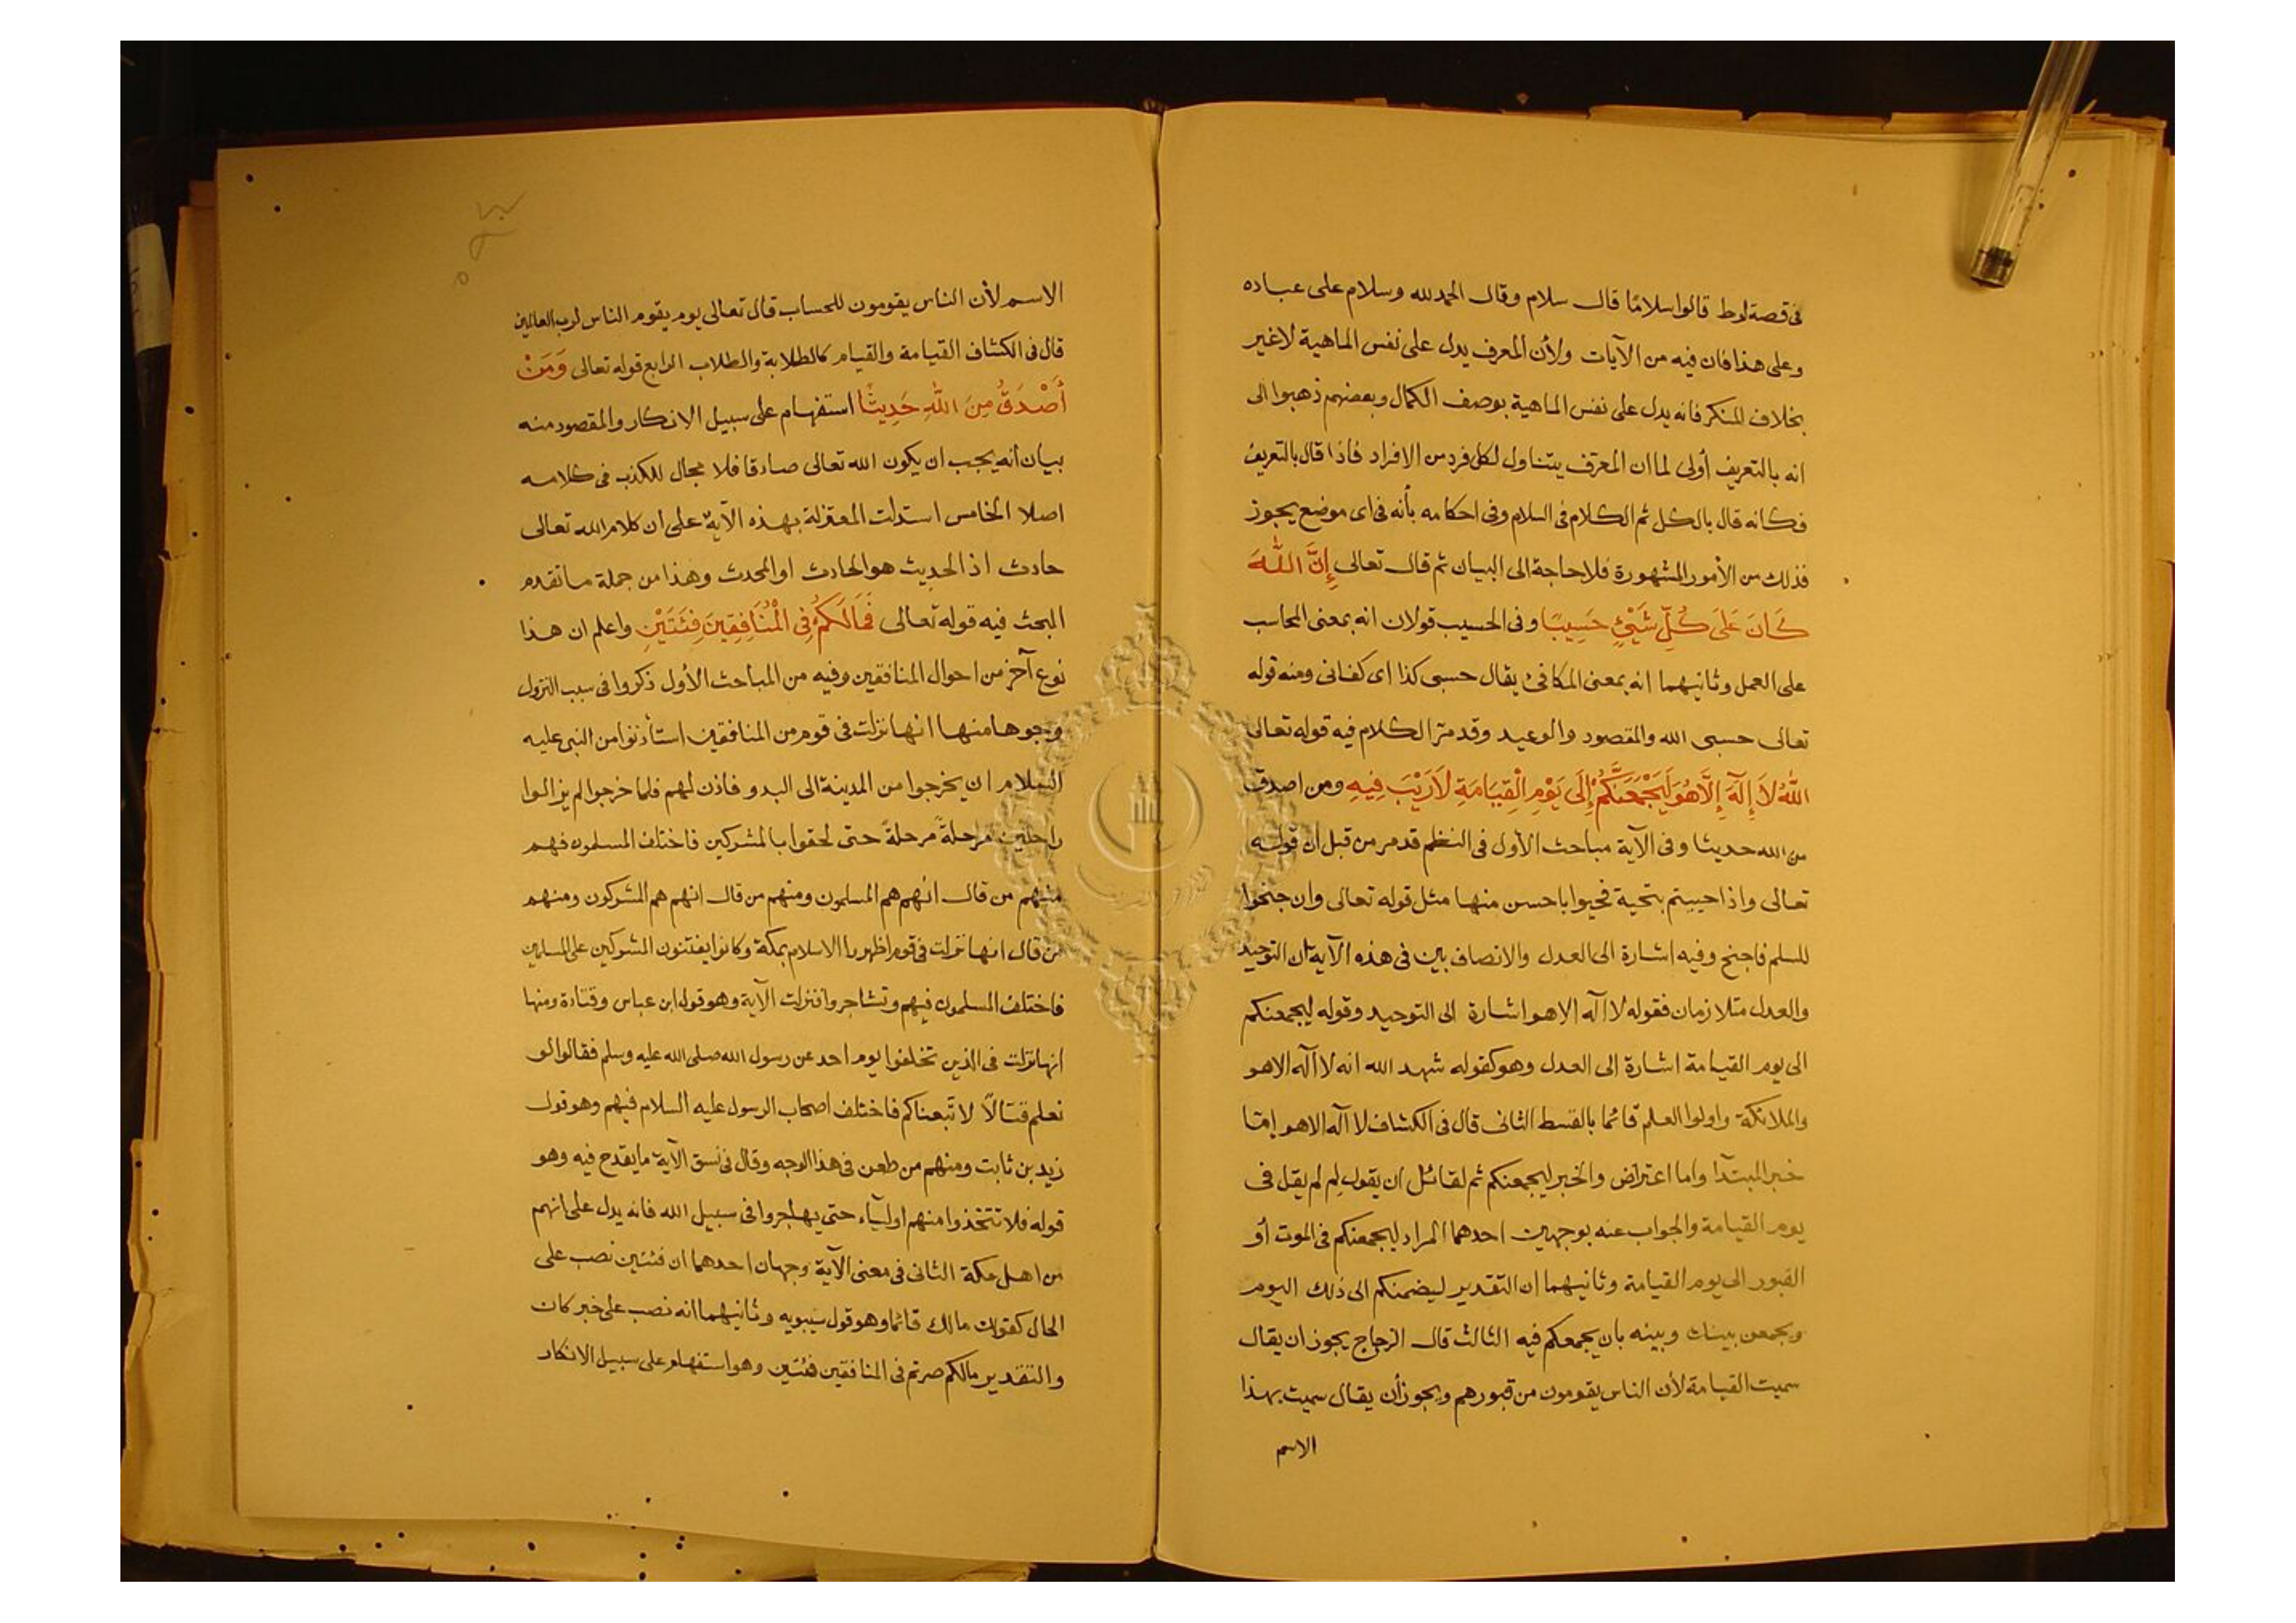 فى قصة لوط قالوا سلامًا قال سلام وقال الحمد لله وسلام على عباده
وعلى هذا فان فيه من الآيات ولأن المعرف يدل على نفس الماهية لاغير
بخلاف المنكر فانه يدل على نفس الماهية بوصف الكمال وبعضهم ذهبوا الى
انه بالتعريف أولى لما ان المعرف يتناول لكل فرد من الافراد فاذا قال بالتعريف
فكانه قال بالكل ثم الكلام فى السلام وفى احكامه بأنه فى اى موضع يجوز
فذلك من الأمور المشهورة فلا حاجة الى البيان ثم قال تعالى إِنَّ اللَّهَ
كَانَ عَلَى كُلِّ شَيْئٍ حَسِيبًا وفى الحسيب قولان انه بمعنى المحاسب
على العمل وثانيهما انه بمعنى المكافئ يقال حسبى كذا اى كفانى ومنه قوله
تعالى حسبى الله والمقصود والوعيد وقد مرّ الكلام فيه قوله تعالى
اللَّهُ لَا إِلَهَ إِلَّا هُوَ لَيَجْمَعَنَّكُمْ إِلَى يَوْمِ الْقِيَامَةِ لَا رَيْبَ فِيهِ ومن اصدق
من الله حديثا وفى الآية مباحث الأول فى النظم قد مر من قبل ان قوله
تعالى واذا حييتم بتحية فحيوا باحسن منها مثل قوله تعالى وان جنحوا
للسلم فاجنح وفيه اشارة الى العدل والانصاف بين فى هذه الآية ان التوحيد
والعدل متلازمان فقوله لا اله الا هو اشارة الى التوحيد وقوله ليجمعنكم
الى يوم القيامة اشارة الى العدل وهو كقوله شهد الله انه لا اله الا هو
والملائكة واولوا العلم قائما بالقسط الثانى قال فى الكشاف لا اله الا هو إمّا
خبر المبتدا واما اعتراض والخبر ليجمعنكم ثم لقائل ان يقول لم لم يقل فى
يوم القيامة والجواب عنه بوجهين احدهما المراد ليجمعنكم فى الموت أو
القبور الى يوم القيامة وثانيهما ان التقدير ليضمنكم الى ذلك اليوم
ويجمعن بينك وبينه بان يجمعكم فيه الثالث قال الزجاج يجوز ان يقال
سميت القيامة لأن الناس يقومون من قبورهم ويجوز أن يقال سميت بهذا
الاسم
الاسم لأن الناس يقومون للحساب قال تعالى يوم يقوم الناس لرب العالمين
قال فى الكشاف القيامة والقيام كالطلابة والطلاب الرابع قوله تعالى وَمَنْ
أَصْدَقُ مِنَ اللَّهِ حَدِيثًا استفهام على سبيل الانكار والمقصود منه
بيان أنه يجب ان يكون الله تعالى صادقا فلا مجال للكذب فى كلامه
اصلا الخامس استدلت المعتزلة بهذه الآية على ان كلام الله تعالى
حادث اذ الحديث هو الحادث او المحدث وهذا من جملة ما تقدم
البحث فيه قوله تعالى فَمَا لَكُمْ فِى الْمُنَافِقِينَ فِئَتَيْنِ واعلم ان هذا
نوع آخر من احوال المنافقين وفيه من المباحث الأول ذكروا فى سبب النزول
وجوها منها انها نزلت فى قوم من المنافقين استأذنوا من النبى عليه
السلام ان يخرجوا من المدينة الى البدو فاذن لهم فلما خرجوا لم يزالوا
راحلين مرحلةً مرحلةً حتى لحقوا بالمشركين فاختلف المسلمون فهم
منهم من قال انهم هم المسلمون ومنهم من قال انهم هم المشركون ومنهم
من قال انها نزلت فى قوم اظهروا الاسلام بمكة وكانوا يفتنون المشركين على المسلمين
فاختلف المسلمون فيهم وتشاجروا فنزلت الآية وهو قول ابن عباس وقتادة ومنها
انها نزلت فى الذين تخلفوا يوم احد عن رسول الله صلى الله عليه وسلم فقالوا لو
نعلم قتالاً لاتّبعناكم فاختلف اصحاب الرسول عليه السلام فيهم وهو قول
زيد بن ثابت ومنهم من طعن فى هذا الوجه وقال فى نسق الآية ما يقدح فيه وهو
قوله فلا تتخذوا منهم اولياء حتى يهاجروا فى سبيل الله فانه يدل على انهم
من اهل مكة الثانى فى معنى الآية وجهان احدهما ان فئتين نصب على
الحال كقولك مالك قائما وهو قول سيبويه وثانيهما انه نصب على خبر كان
والتقدير مالكم صرتم فى المنافقين فئتين وهو استفهام على سبيل الانكار